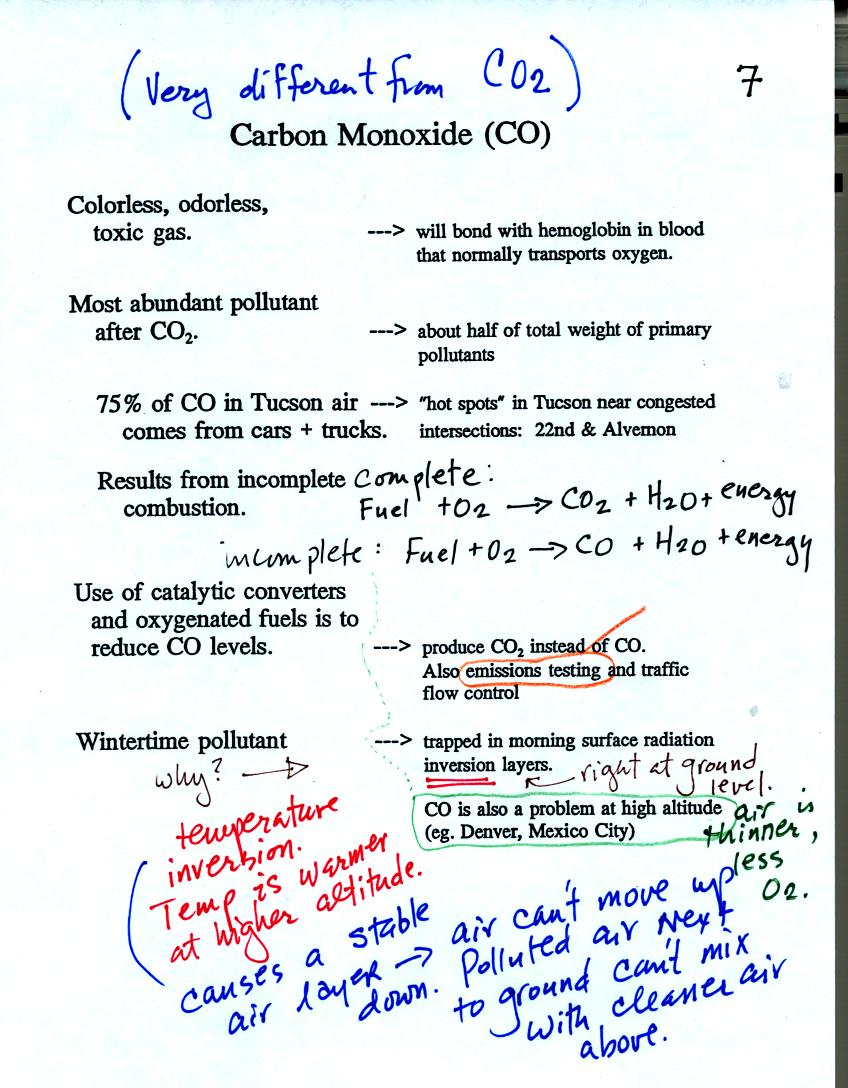 (Very different from CO2)
7
Carbon Monoxide (CO)
Colorless, odorless,
toxic gas.
---> will bond with hemoglobin in blood
that normally transports oxygen.
Most abundant pollutant
after CO₂.
---> about half of total weight of primary
pollutants
75% of CO in Tucson air ---> "hot spots" in Tucson near congested
comes from cars + trucks. intersections: 22nd & Alvernon
Results from incomplete
combustion.
Complete:
Fuel + O2 → CO2 + H2O + energy
incomplete: Fuel + O2 → CO + H2O + energy
Use of catalytic converters
and oxygenated fuels is to
reduce CO levels.
---> produce CO₂ instead of CO.
Also emissions testing and traffic
flow control
Wintertime pollutant
---> trapped in morning surface radiation
inversion layers.
right at ground
level.
why? →
CO is also a problem at high altitude
(eg. Denver, Mexico City)
air is
thinner,
less
O2.
temperature
inversion.
Temp is warmer
at higher altitude.
causes a stable
air layer → air can't move up
down. Polluted air Next
to ground can't mix
with cleaner air
above.